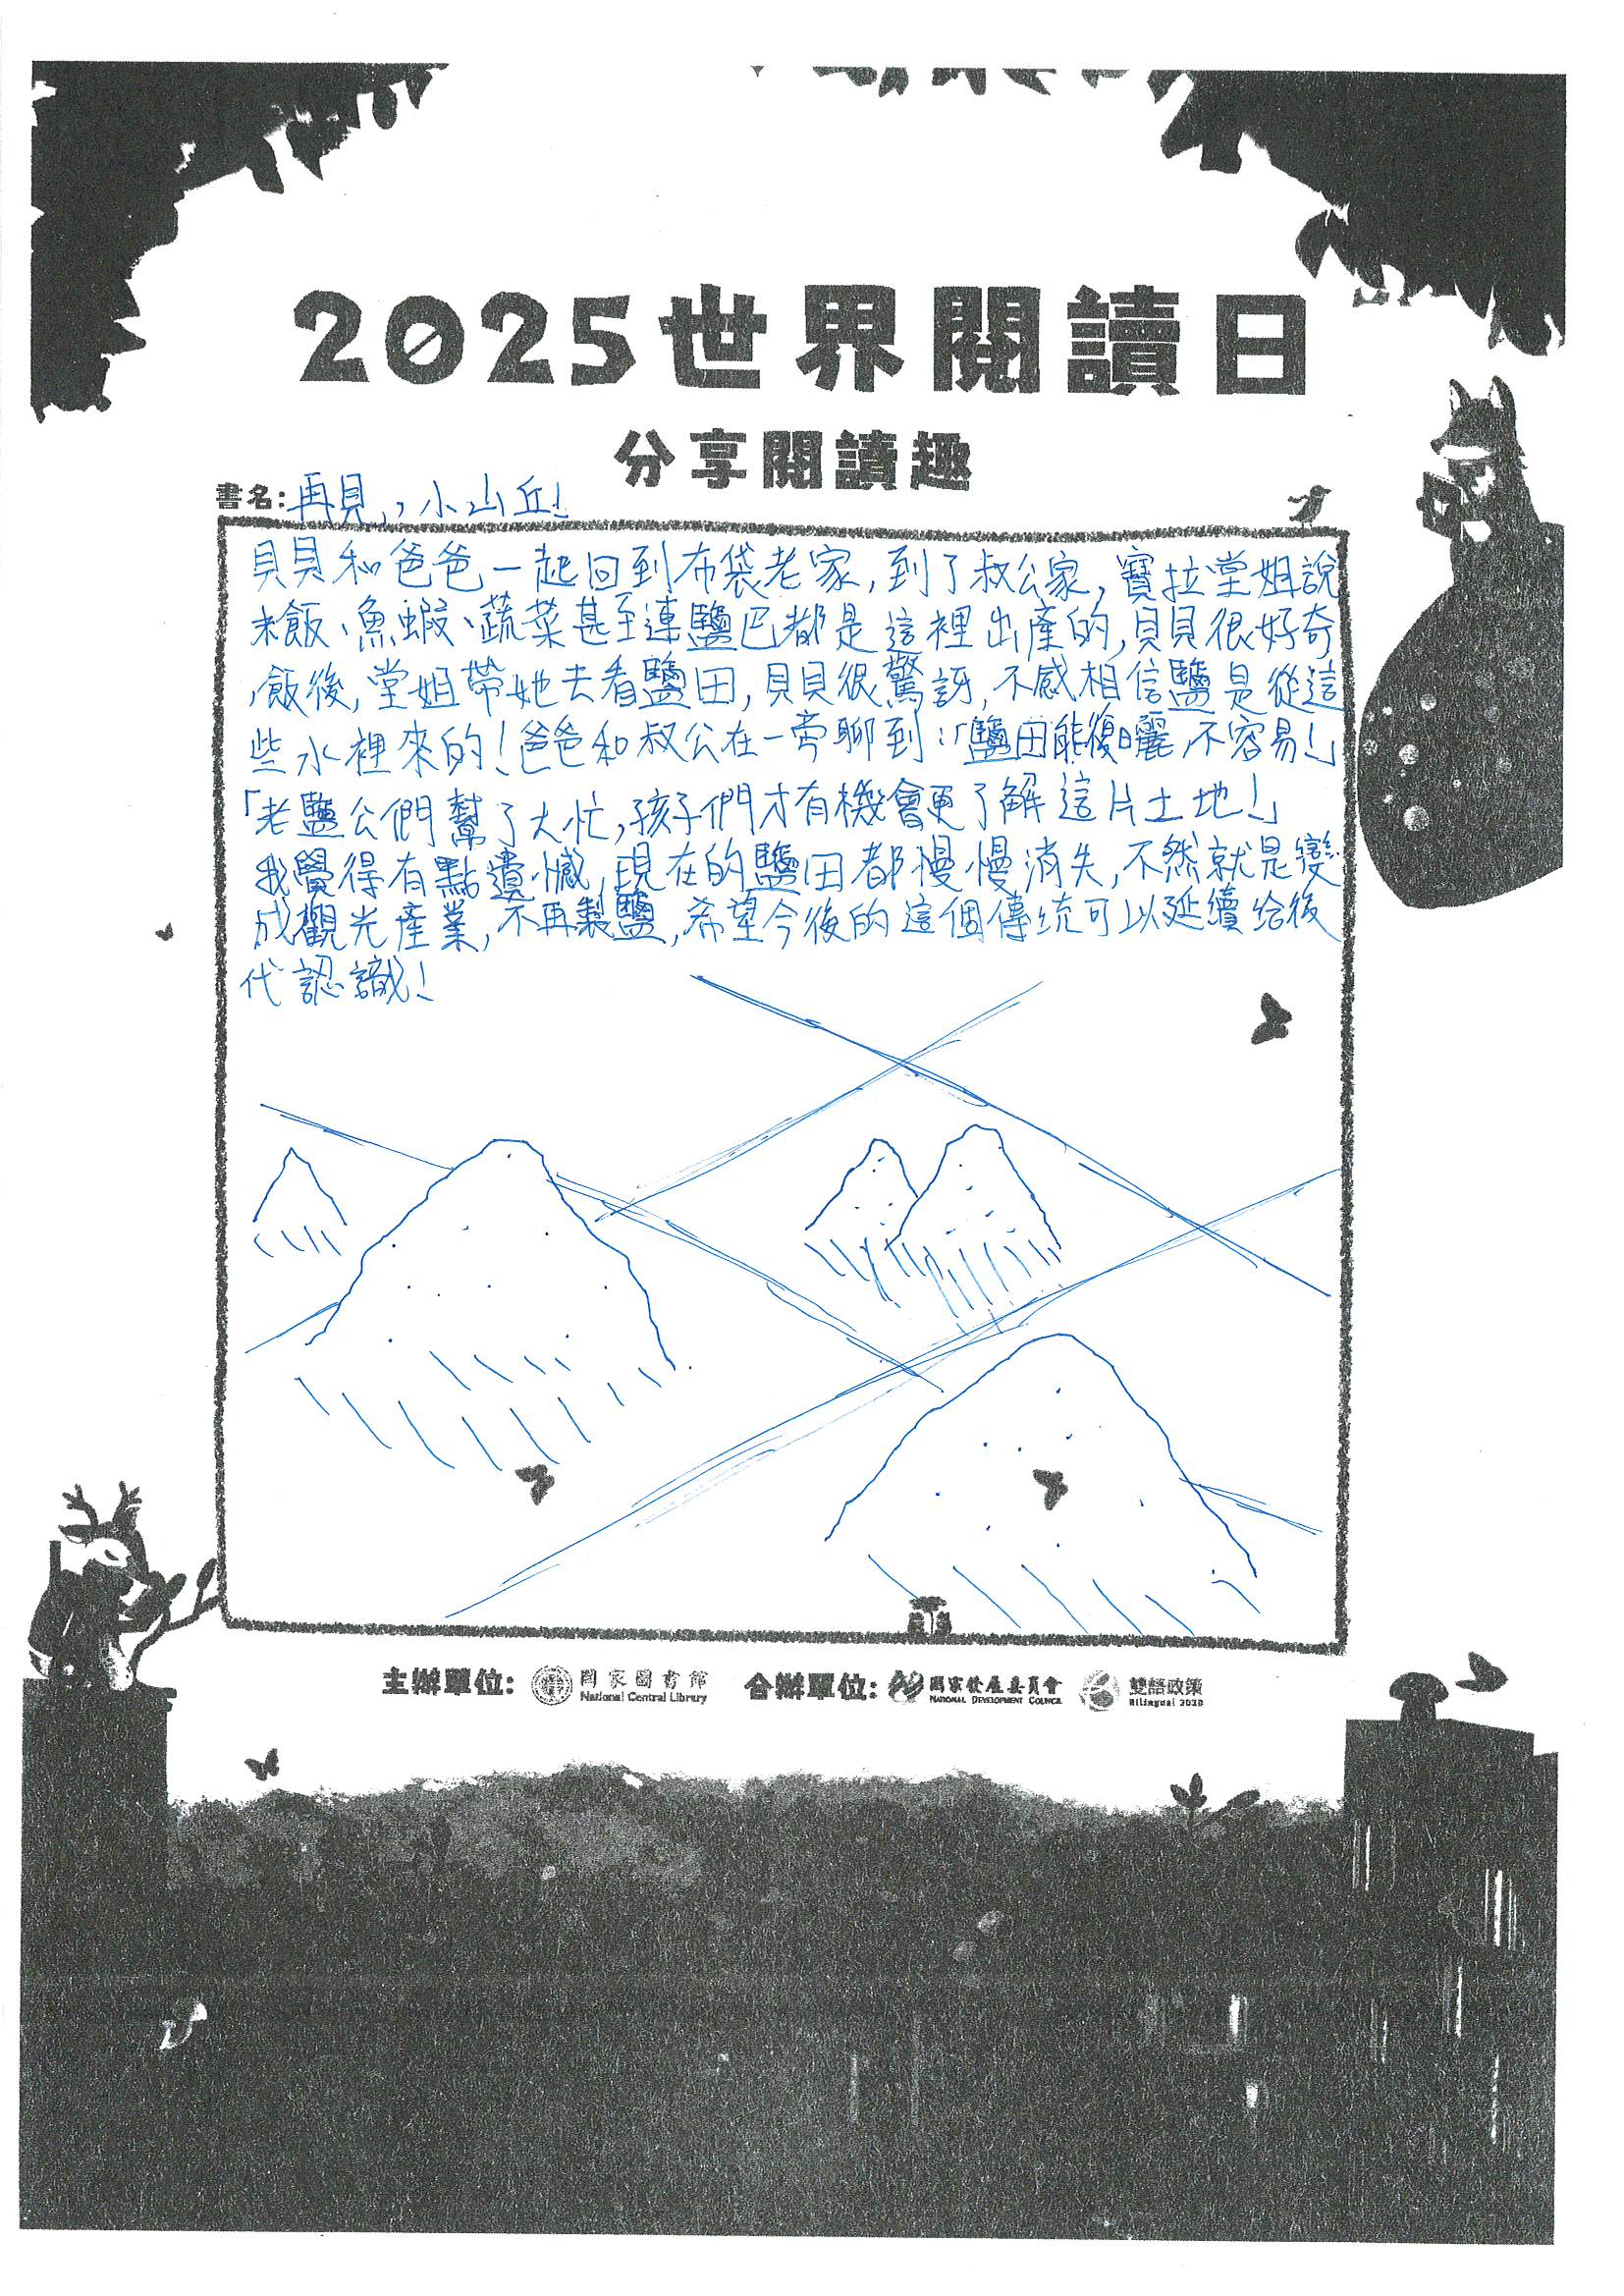 2025世界閱讀日
分享閱讀趣
書名:再見,,小山丘!
貝貝和爸爸一起回到布袋老家,到了叔公家,寶拉堂姐說
米飯、魚蝦、蔬菜甚至連鹽巴都是這裡出產的,貝貝很好奇
,飯後,堂姐帶她去看鹽田,貝貝很驚訝,不感相信鹽是從這
些水裡來的!爸爸和叔公在一旁聊到:「鹽田能復曬,不容易!」
「老鹽公們幫了大忙,孩子們才有機會更了解這片土地!」
我覺得有點遺憾,現在的鹽田都慢慢消失,不然就是變
成觀光產業,不再製鹽,希望今後的這個傳統可以延續給後
代認識!
主辦單位: 國家圖書館 合辦單位: 國家發展委員會 雙語政策
National Central Library NATIONAL DEVELOPMENT COUNCIL Bilingual 2030